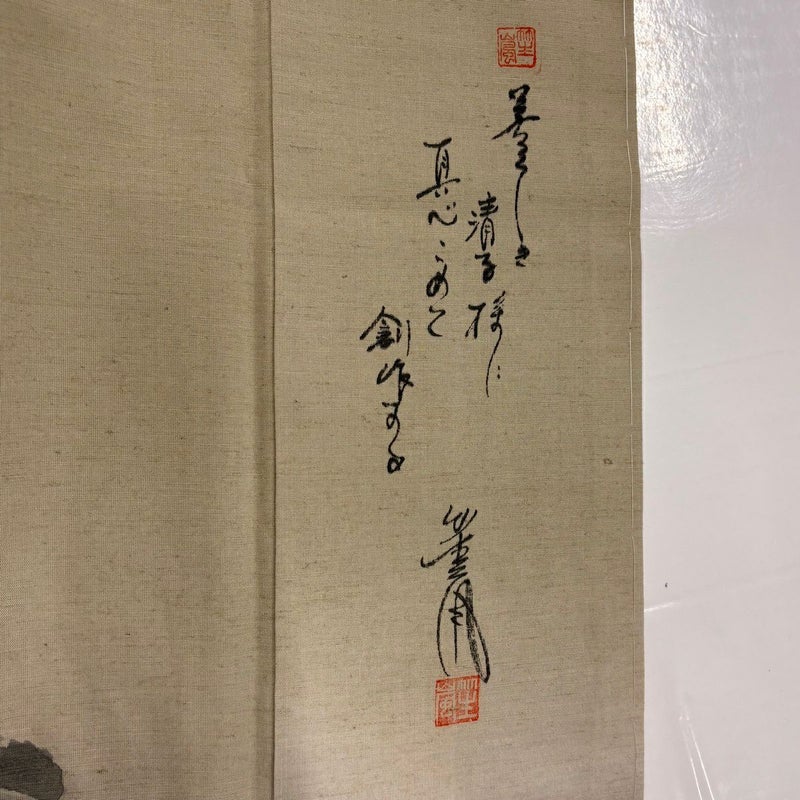 美しき
清子様に
真心こめて
創作する